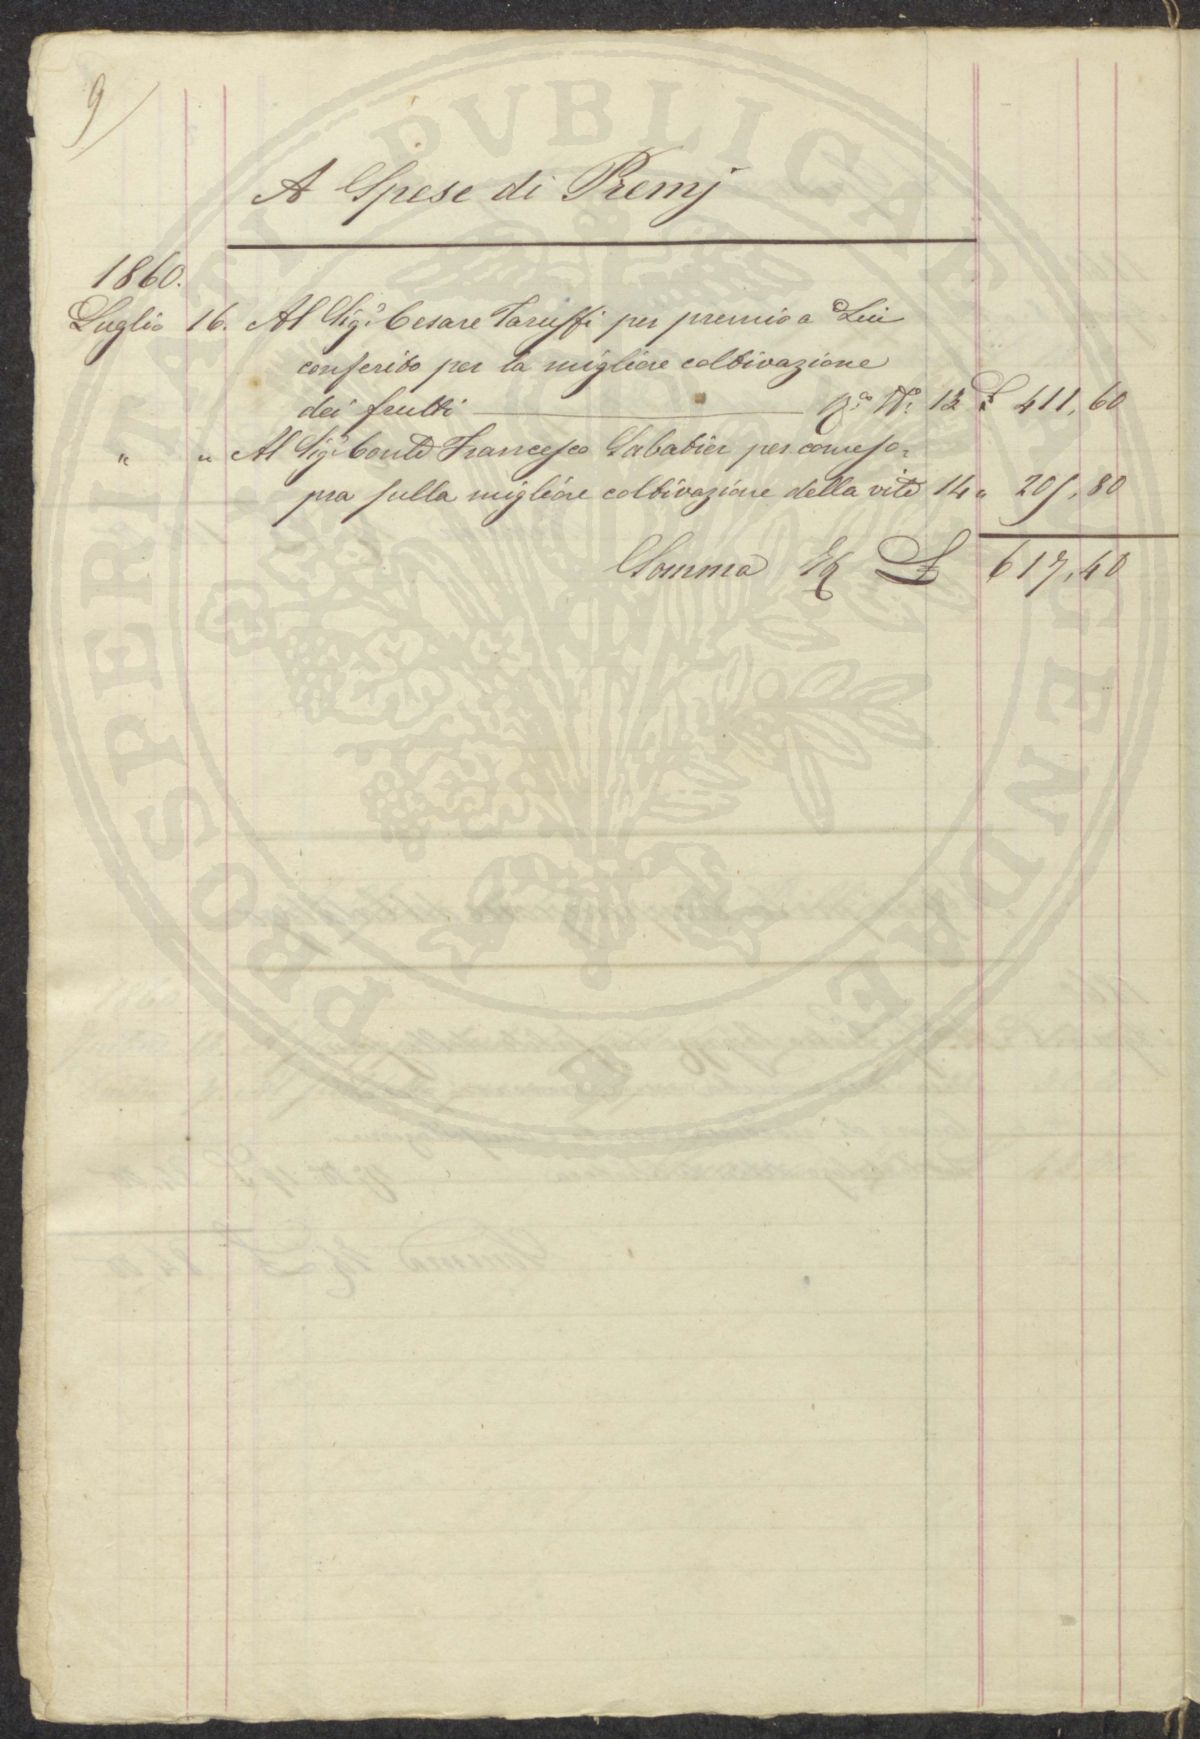 9
A Spese di Premj
1860.
Luglio 16. Al Sigr. Cesare Taruffi per premio a Lui
conferito per la migliore coltivazione
dei frutti No. 13 £ 411,60
" " Al Sigr. Conte Francesco Sabatier per comeso=
pra sulla migliore coltivazione della vite 14 " 205,80
Somma £ 617,40
PROSPERITATI PVBLICAE AVGENDAE